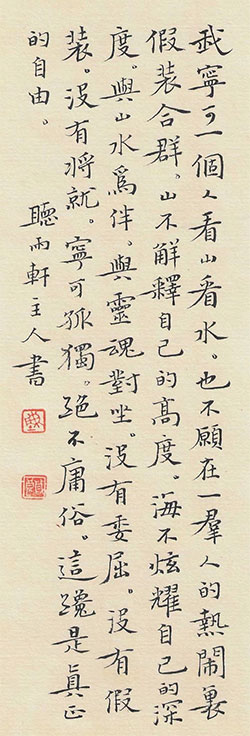 我寧可一個人看山看水。也不願在一羣人的熱鬧裏
假装合群。山不解釋自己的高度。海不炫耀自己的深
度。與山水爲伴。與靈魂對坐。没有委屈。没有假
装。没有将就。寧可孤獨。絕不庸俗。這纔是真正
的自由。
聽雨軒主人書